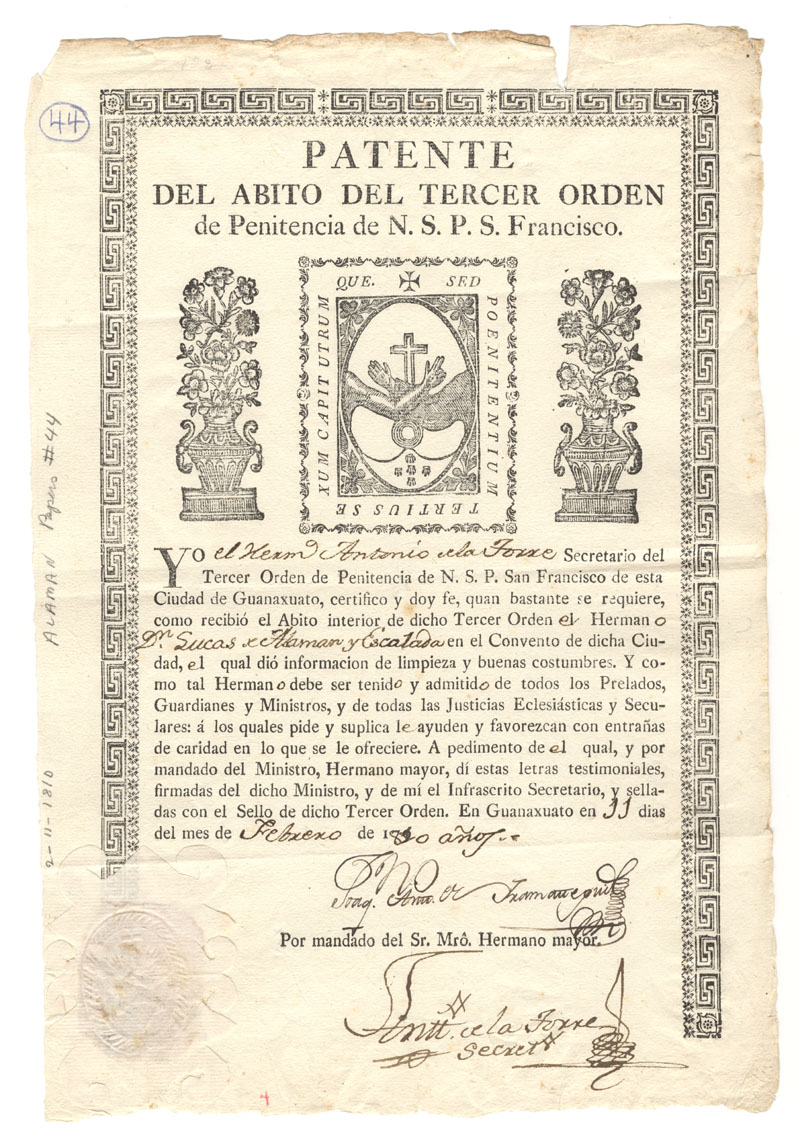 44
PATENTE
DEL ABITO DEL TERCER ORDEN
de Penitencia de N. S. P. S. Francisco.
QUE. SED
POENITENTIUM
TERTIUS SE
XUM CAPIT UTRUM
YO el Hermo Antonio de la Torre Secretario del
Tercer Orden de Penitencia de N. S. P. San Francisco de esta
Ciudad de Guanaxuato, certifico y doy fe, quan bastante se requiere,
como recibió el Abito interior de dicho Tercer Orden el Hermano
Dn Lucas de Alaman y Escalada en el Convento de dicha Ciu-
dad, el qual dió informacion de limpieza y buenas costumbres. Y co-
mo tal Hermano debe ser tenido y admitido de todos los Prelados,
Guardianes y Ministros, y de todas las Justicias Eclesiásticas y Secu-
lares: á los quales pide y suplica le ayuden y favorezcan con entrañas
de caridad en lo que se le ofreciere. A pedimento de el qual, y por
mandado del Ministro, Hermano mayor, dí estas letras testimoniales,
firmadas del dicho Ministro, y de mí el Infrascrito Secretario, y sella-
das con el Sello de dicho Tercer Orden. En Guanaxuato en 11 dias
del mes de Febrero de 1810 años.
Joaq. Anto. de
Por mandado del Sr. Mrô. Hermano mayor.
Antt. de la Torre
Secret
ALAMAN Papers #44
2-11-1810
4